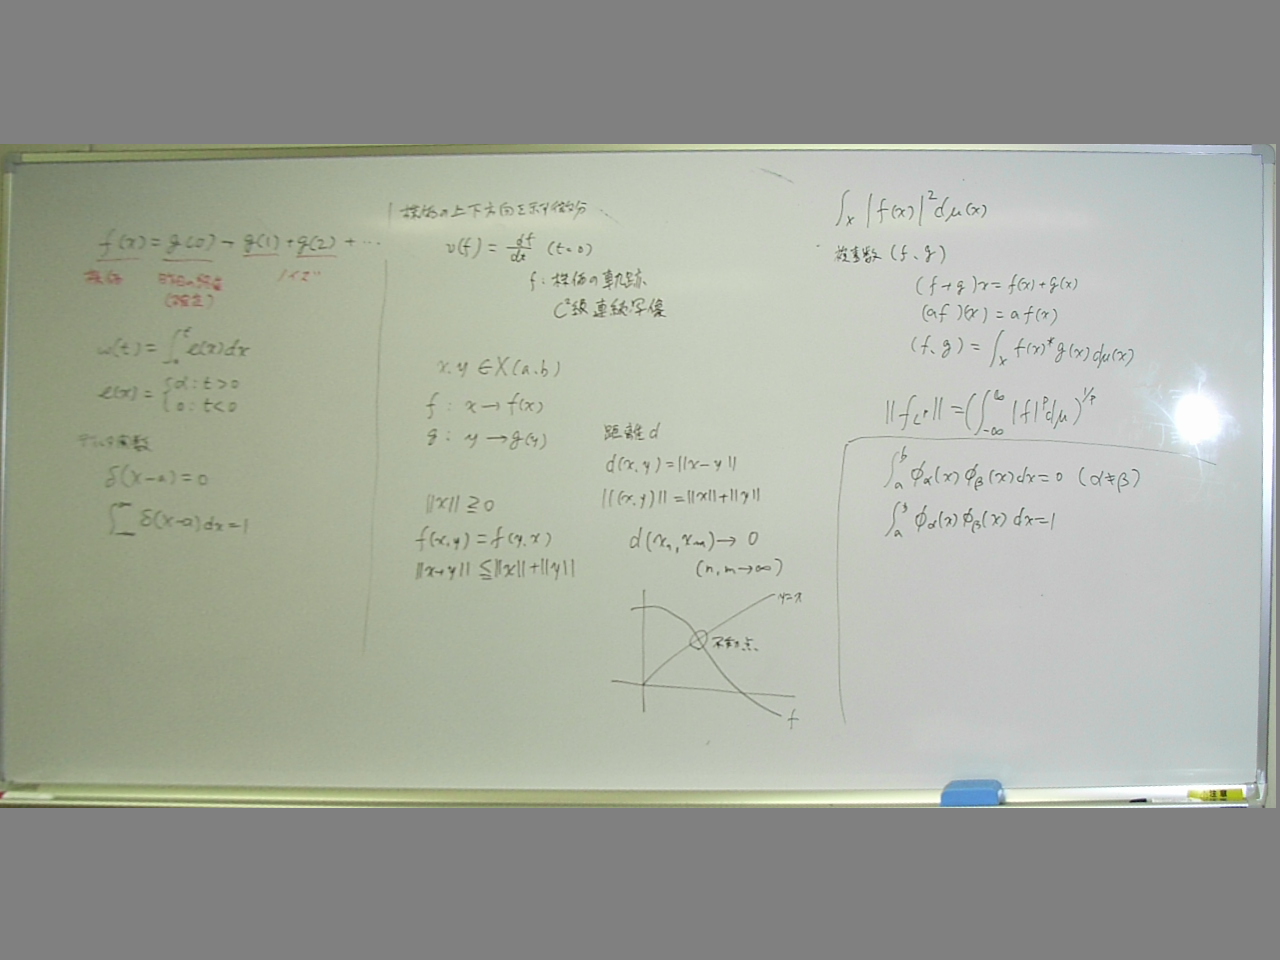 f(x) = g(0) → g(1) + g(2) + ...
株価
(確定)
ノイズ
ω(t) = ∫ᵗ ℓ(x)dx
ℓ(x) = { α : t>0
0 : t<0
デルタ関数
δ(x-a) = 0
∫ δ(x-a)dx = 1
株価の上下方向を示す微分
v(f) = df/dt (t=0)
f : 株価の軌跡
C²級 連続写像
x, y ∈ X(a,b)
f : x → f(x)
g : y → g(y)
||x|| ≧ 0
f(x,y) = f(y,x)
||x+y|| ≦ ||x|| + ||y||
距離 d
d(x,y) = ||x-y||
||(x,y)|| = ||x|| + ||y||
d(xₙ, xₘ) → 0
(n, m → ∞)
y=x
不動点
f
∫ₓ |f(x)|² dμ(x)
複素数 (f、g)
(f+g)x = f(x)+g(x)
(af)(x) = a f(x)
(f、g) = ∫ₓ f(x)* g(x) dμ(x)
||f_Lᵖ|| = (∫_{-∞}^{∞} |f|ᵖ dμ)^{1/p}
∫ₐᵇ φα(x) φβ(x) dx = 0 (α≠β)
∫ₐᵇ φα(x) φβ(x) dx = 1
注意